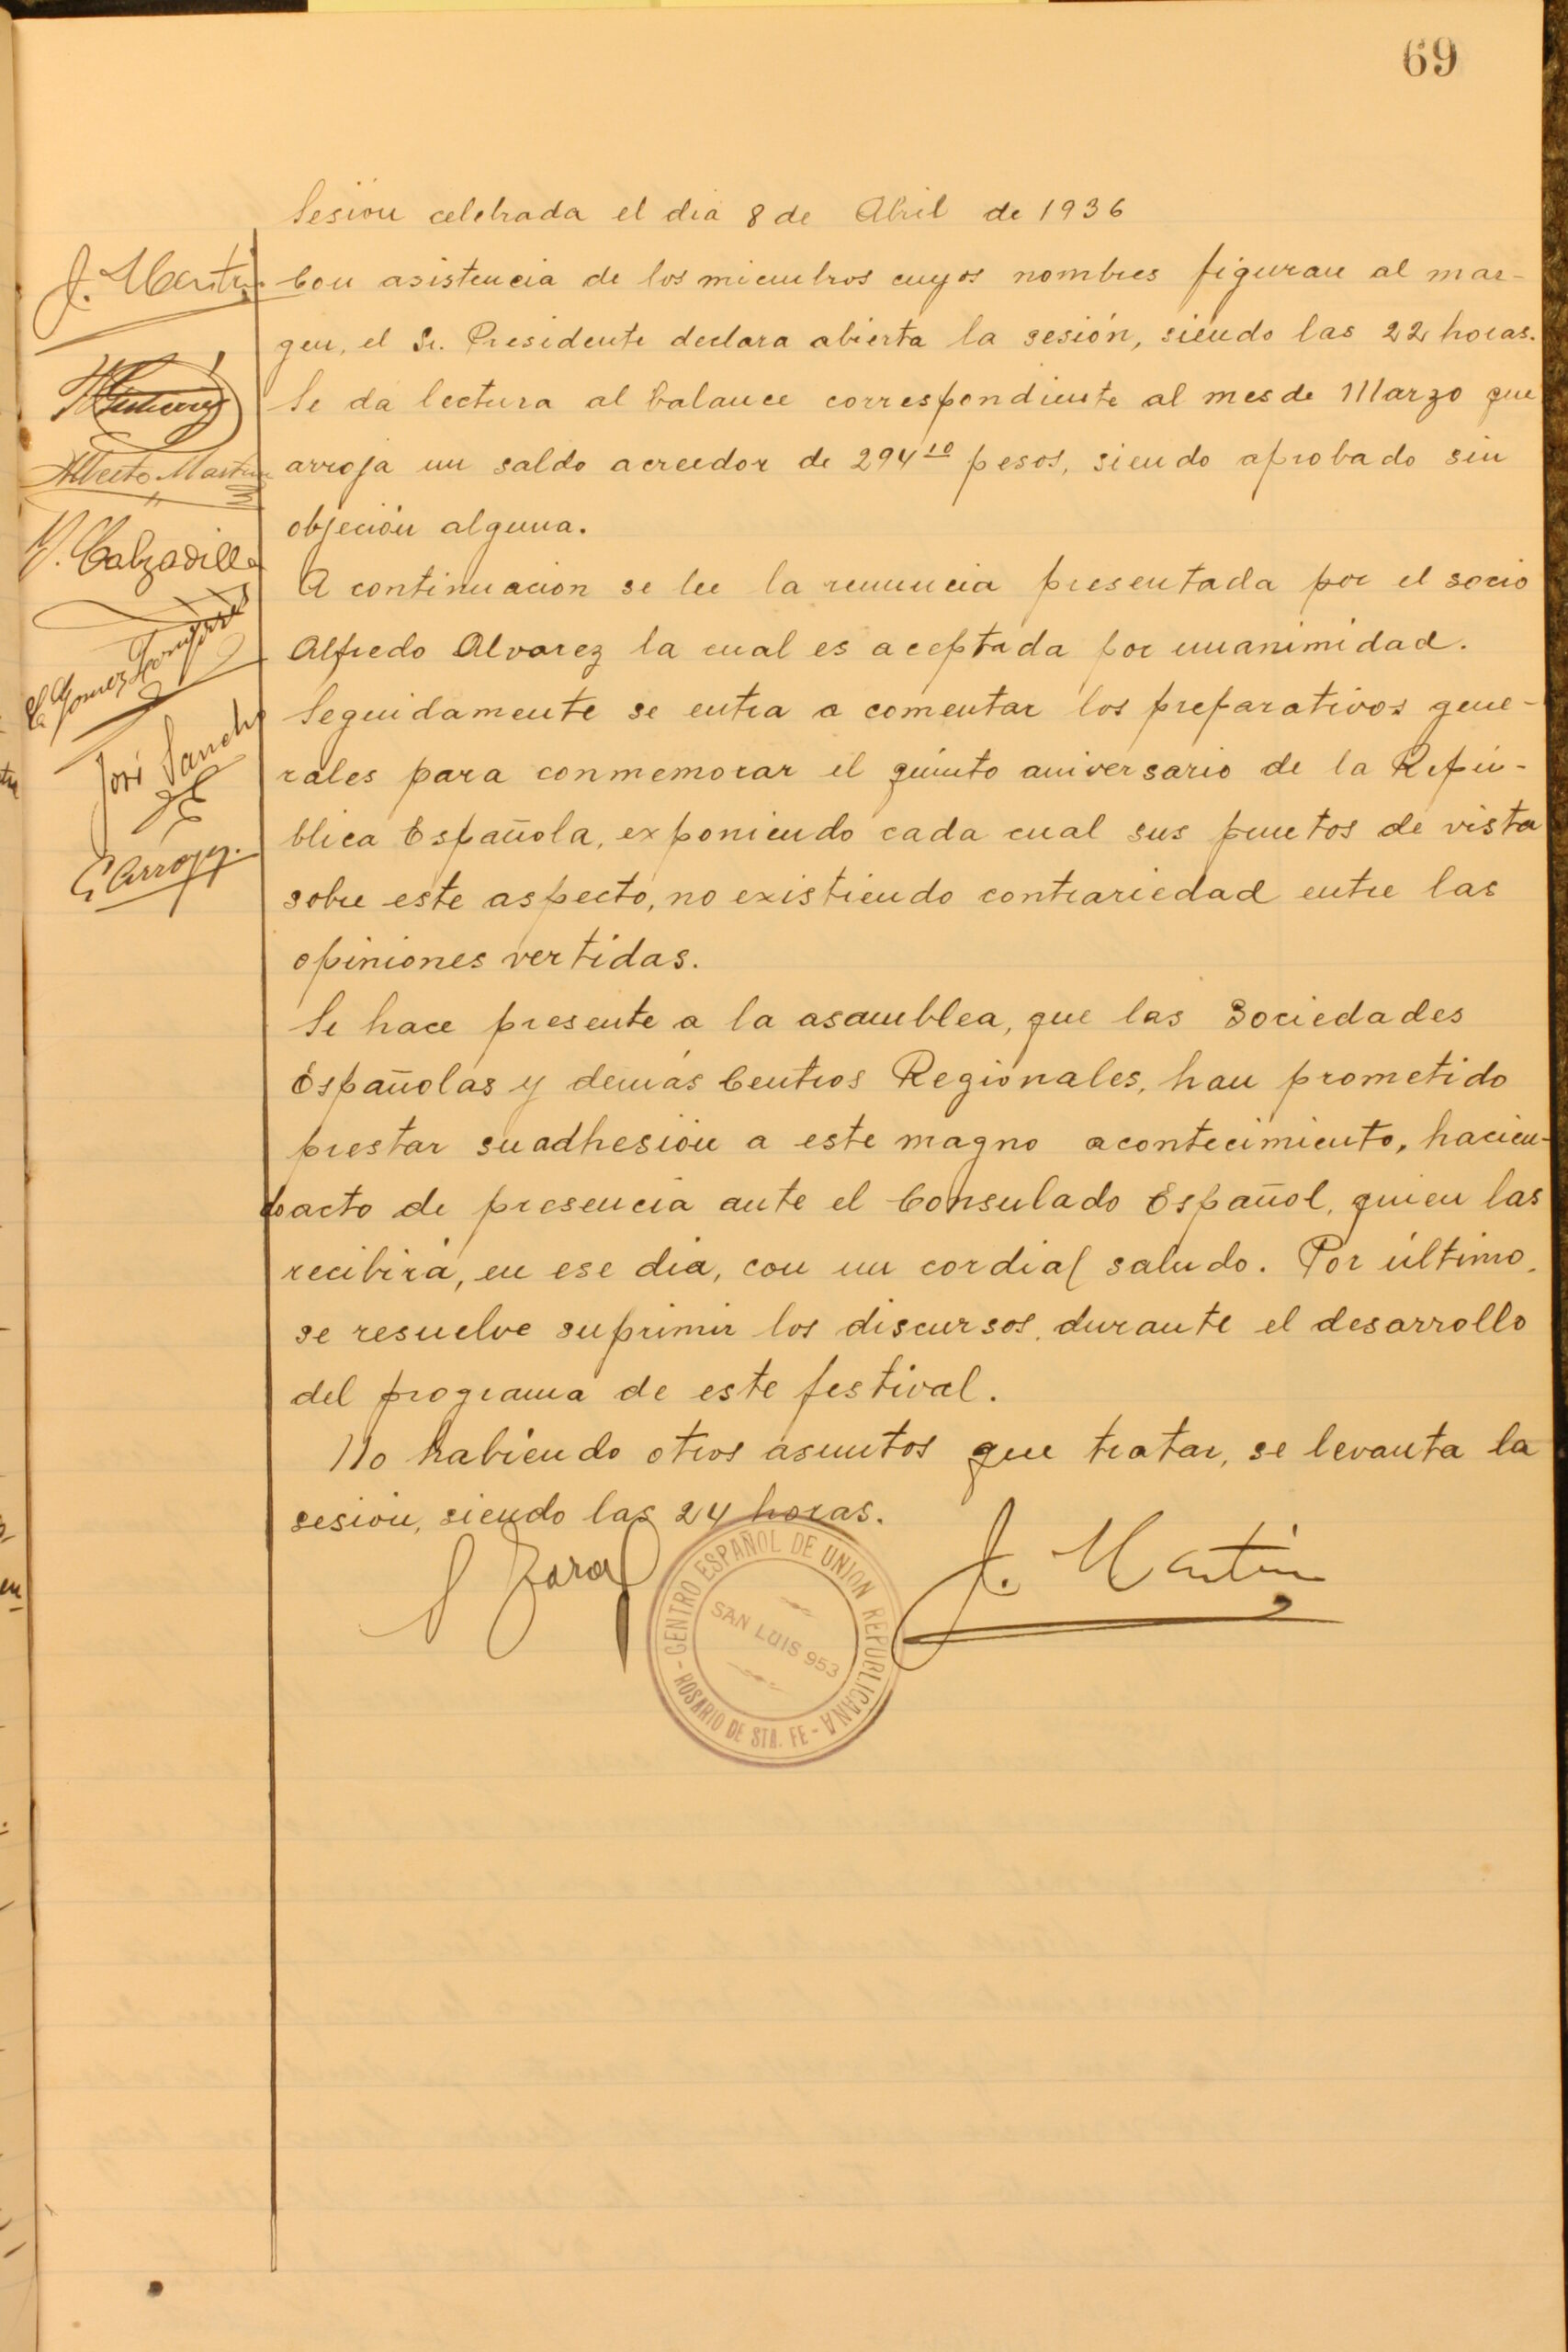 69
Sesión celebrada el dia 8 de Abril de 1936
Con asistencia de los miembros cuyos nombres figuran al mar-
gen, el Sr. Presidente declara abierta la sesión, siendo las 22 horas.
Se da lectura al balance correspondiente al mes de Marzo que
arroja un saldo acreedor de 294 10 pesos, siendo aprobado sin
objeción alguna.
A continuación se lee la renuncia presentada por el socio
Alfredo Alvarez la cual es aceptada por unanimidad.
Seguidamente se entra a comentar los preparativos gene-
rales para conmemorar el quinto aniversario de la Repú-
blica Española, exponiendo cada cual sus puntos de vista
sobre este aspecto, no existiendo contrariedad entre las
opiniones vertidas.
Se hace presente a la asamblea, que las Sociedades
Españolas y demás Centros Regionales, han prometido
prestar su adhesión a este magno acontecimiento, hacien-
do acto de presencia ante el Consulado Español, quien las
recibirá, en ese dia, con un cordial saludo. Por último,
se resuelve suprimir los discursos, durante el desarrollo
del programa de este festival.
No habiendo otros asuntos que tratar, se levanta la
sesión, siendo las 24 horas.
J. Martin
Alberto Martin
M. Calzadilla
José Sancho
E. Arroyo
J. Martin
CENTRO ESPAÑOL DE UNION REPUBLICANA
SAN LUIS 953
- ROSARIO DE STA. FE -